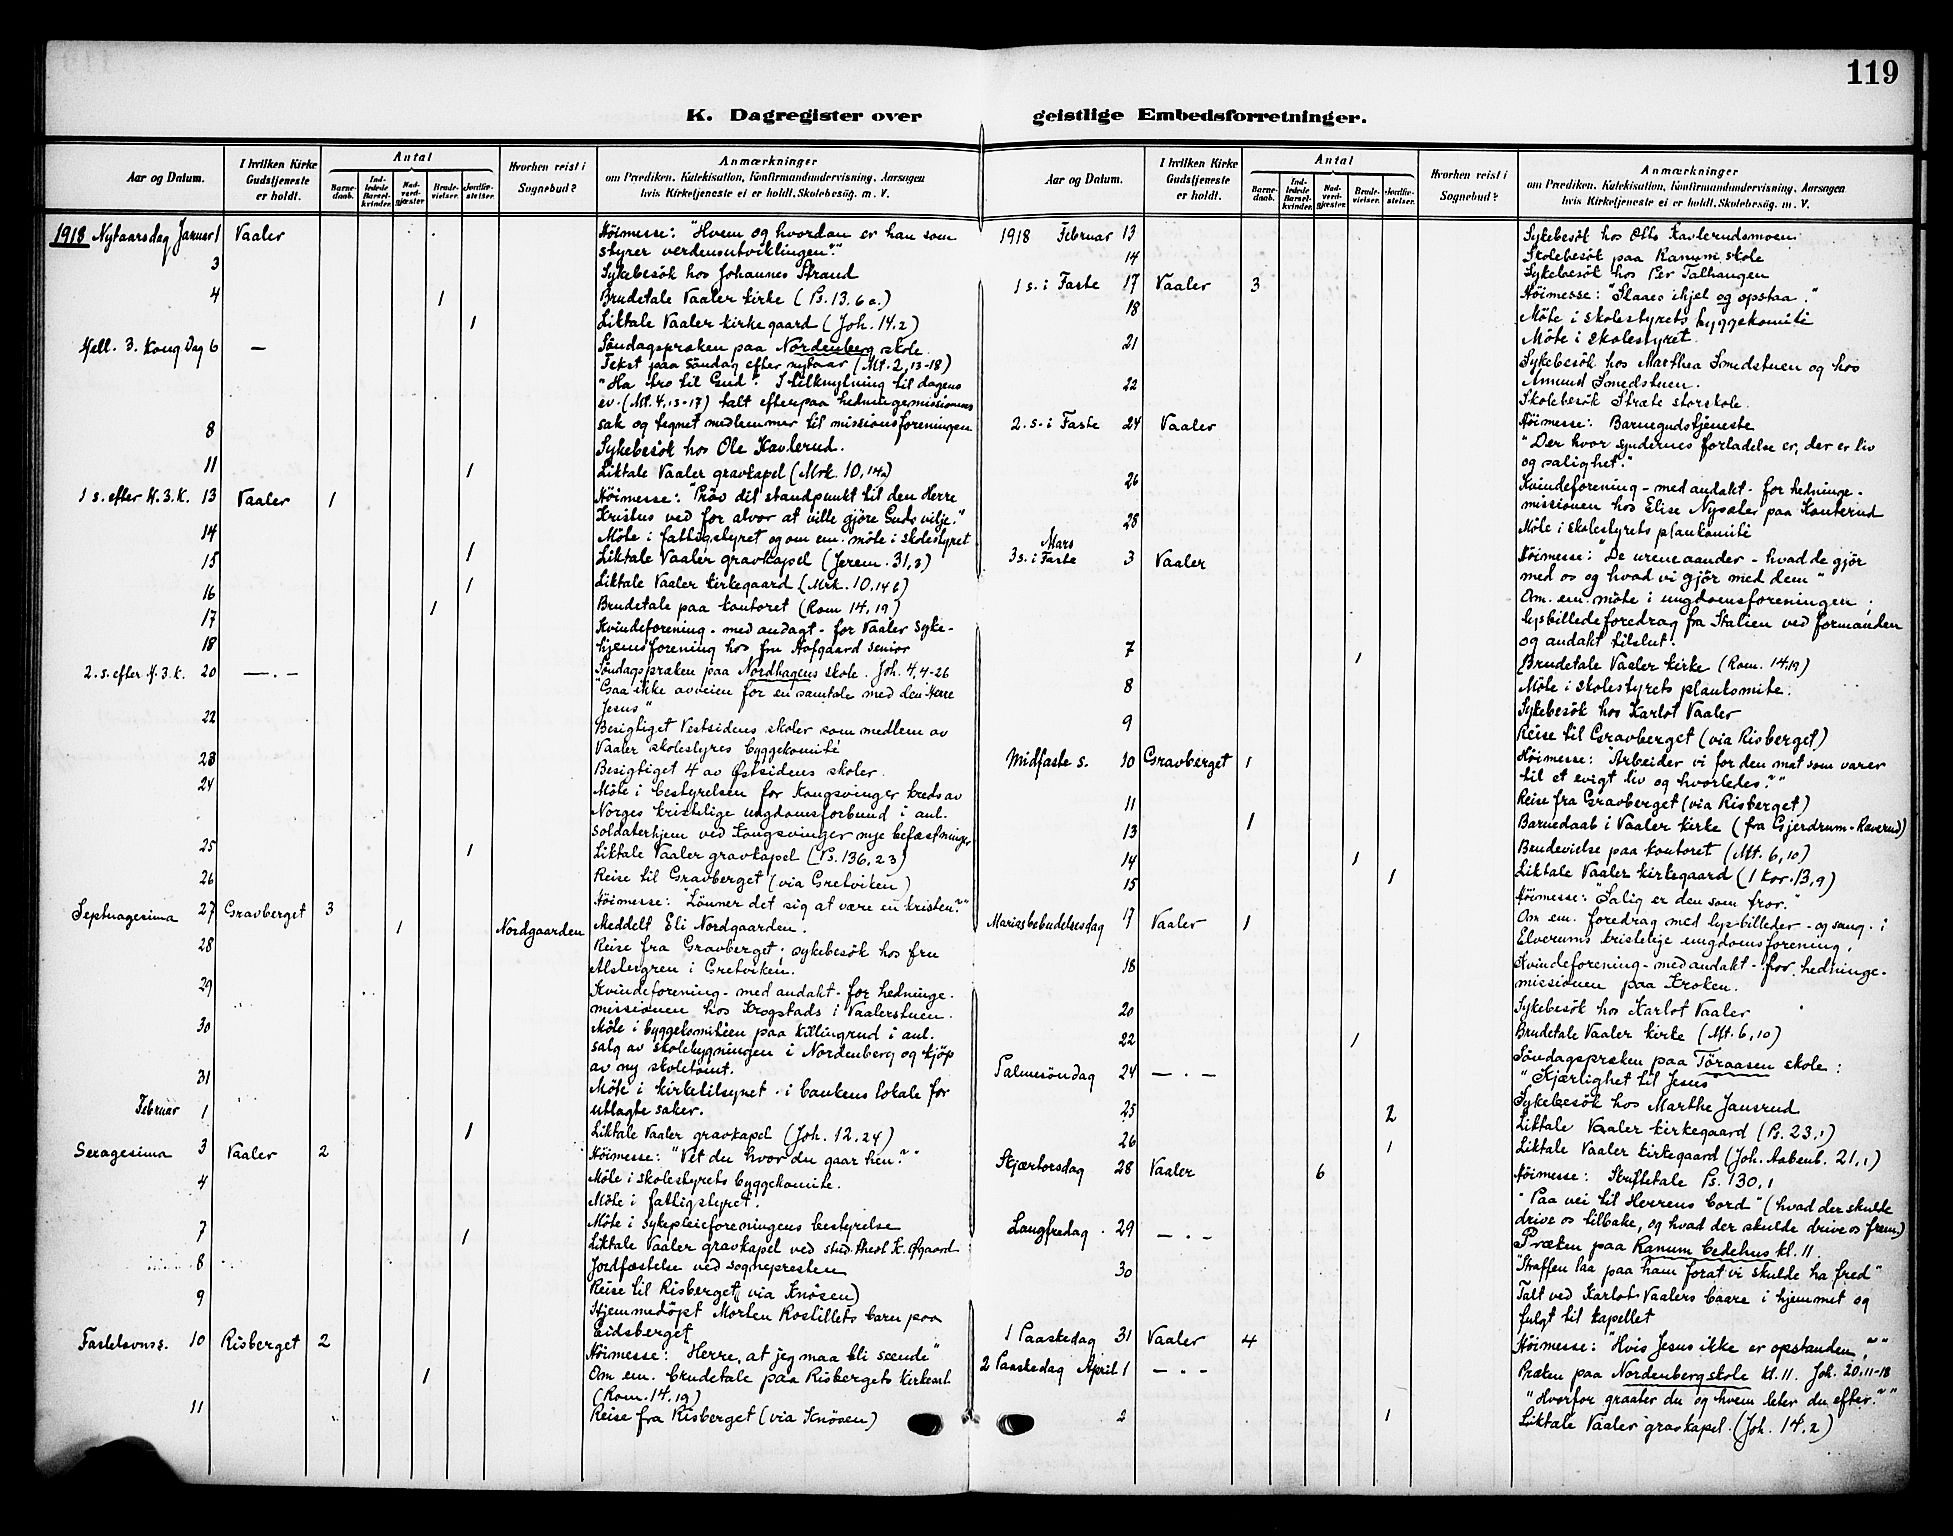 119
K. Dagregister over geistlige Embedsforretninger.
Aar og Datum. I hvilken Kirke Gudstjeneste er holdt. Antal Barnedaab. Indledede Barselkvinder. Nadverdgjæster Brudevielser. Jordfæstelser. Hvorhen reist i Sognebud? Anmærkninger om Prædiken, Katekisation, Konfirmandundervisning, Aarsagen hvis Kirketjeneste ei er holdt. Skolebesög. m. V.
1918 Nytaarsdag Januar 1 Vaaler Höimesse: "Hvem og hvordan er han som
styrer verdensutviklingen?"
3 Sykebesök hos Johannes Strand
4 1 Brudetale Vaaler kirke (Ps. 13. 6 a.)
1 Liktale Vaaler kirkegaard (Joh. 14.2)
Hell. 3. Kong Dag 6 — Söndagspræken paa Nordenberg skole.
Tekst paa Söndag efter nytaar (Mt. 2, 13-18)
"Ha tro til Gud". I tilknytning til dagens
ev. (Mt. 4, 13-17) talt efterpaa hedningemissionens
sak og tegnet medlemmer til missionsforeningen
8 Sykebesök hos Ole Kavlerud.
11 1 Liktale Vaaler gravkapel (Mrk. 10, 14a)
1 s. efter H. 3. K. 13 Vaaler 1 Höimesse: "Pröv dit standpunkt til den Herre
Kristus ved for alvor at ville gjöre Guds vilje."
14 Möte i fattigstyret og om em. möte i skolestyret
15 1 Liktale Vaaler gravkapel (Jerem. 31, 3)
1 Liktale Vaaler kirkegaard (Mrk. 10, 14 b)
16 1 Brudetale paa kontoret (Rom 14, 19)
17 Kvindeforening - med andagt - for Vaaler syke-
18 hjemsforening hos fru Hofgaard senior
2. s. efter H. 3. K. 20 — . — Söndagspræken paa Nordhagens skole. Joh. 4, 4-26
"Gaa ikke avveien for en samtale med den Herre
Jesus"
22 Besigtiget Vestsidens skoler som medlem av
Vaaler skolestyres byggekomité
23 Besigtiget 4 av Østsidens skoler.
24 Möte i bestyrelsen for Kongsvinger kreds av
Norges kristelige ungdomsforbund i anl.
soldaterhjem ved Kongsvinger nye befæstninger
25 1 Liktale Vaaler gravkapel (Ps. 136, 23)
26 Reise til Gravberget (via Gretviken)
Septuagesima 27 Gravberget 3 Höimesse: "Lönner det sig at være en kristen?"
1 Nordgaarden Meddelt Eli Nordgaarden.
28 Reise fra Gravberget; sykebesök hos fru
Alsbergren i Gretviken.
29 Kvindeforening - med andakt - for hedninge-
missionen hos Krogstads i Vaalerstuen.
30 Möte i byggekomitéen paa Killingrud i anl.
salg av skolebygningen i Nordenberg og kjöp
av ny skoletomt.
31 Möte i kirketilsynet - i bankens lokale for
Februar 1 utlagte saker.
1 Liktale Vaaler gravkapel (Joh. 12. 24)
Sexagesima 3 Vaaler 2 Höimesse: "Vet du hvor du gaar hen?"
4 Möte i skolestyrets byggekomite.
Möte i fattigstyret.
7 Möte i sykepleieforeningens bestyrelse
1 Liktale Vaaler gravkapel ved stud. theol. K. Øgaard
8 Jordfæstelse ved sognepresten
Reise til Risberget (via Knösen)
9 Hjemmedöpt Morten Rostillets barn paa
Eidsberget
Fastelavnss. 10 Risberget 2 Höimesse: "Herre, at jeg maa bli seende"
1 Om em. brudetale paa Risbergets kirke
(Rom. 14. 19)
11 Reise fra Risberget (via Knösen)
Aar og Datum. I hvilken Kirke Gudstjeneste er holdt. Antal Barnedaab. Indledede Barselkvinder. Nadverdgjæster Brudevielser. Jordfæstelser. Hvorhen reist i Sognebud? Anmærkninger om Prædiken, Katekisation, Konfirmandundervisning, Aarsagen hvis Kirketjeneste ei er holdt. Skolebesög. m. V.
1918 Februar 13 Sykebesök hos Otto Kavlerudsmoen
14 Skolebesök paa Ranum skole
Sykebesök hos Per Talhaugen
1 s. i Faste 17 Vaaler 3 Höimesse: "Slaaes ihjel og opstaa."
18 Möte i skolestyrets byggekomité
Möte i skolestyret.
21 Sykebesök hos Marthea Smedstuen og hos
Amund Smedstuen.
22 Skolebesök Stræte storskole.
2. s. i Faste 24 Vaaler Höimesse: Barnegudstjeneste
"Der hvor syndernes forladelse er, der er liv
og salighet."
26 Kvindeforening - med andakt - for hedninge-
missionen hos Elise Nysæter paa Konterud
28 Möte i skolestyrets plankomité
Mars
3 s. i Faste 3 Vaaler Höimesse: "De urene aander - hvad de gjör
med os og hvad vi gjör med dem"
Om em. möte i ungdomsforeningen;
lysbilledeforedrag fra Italien ved formanden
og andakt tilslut.
7 1 Brudetale Vaaler kirke (Rom. 14. 19)
8 Möte i skolestyrets plankomite.
Sykebesök hos Karlot Vaaler
9 Reise til Gravberget (via Risberget)
Midfaste s. 10 Gravberget 1 Höimesse: "Arbeider vi for den mat som varer
til et evigt liv og hvorledes?"
11 Reise fra Gravberget (via Risberget)
13 1 Barnedaab i Vaaler kirke (fra Gjerdrum-Raverud)
14 1 Brudevielse paa kontoret (Mt. 6, 10)
15 1 Liktale Vaaler kirkegaard (1 Kor. 13, 9)
Höimesse: "Salig er den som tror."
Mariæbebudelsesdag 17 Vaaler 1 Om em. foredrag med lysbilleder - og sang - i
Elverums kristelige ungdomsforening.
18 Kvindeforening - med andakt - for hedninge-
missionen paa Kroken.
20 Sykebesök hos Karlot Vaaler
22 1 Brudetale Vaaler kirke (Mt. 6, 10)
Palmesöndag 24 — . — Söndagspræken paa Töraasen skole:
"Kjærlighet til Jesus"
25 Sykebesök hos Marthe Jansrud
2 Liktale Vaaler kirkegaard (Ps. 23, 1)
26 1 Liktale Vaaler kirkegaard (Joh. Aabenb. 21, 1)
Skjærtorsdag 28 Vaaler 6 Höimesse: Skriftetale Ps. 130, 1
"Paa vei til Herrens bord" (hvad der skulde
drive os tilbake, og hvad der skulde drive os frem)
Langfredag . 29 — . — Præken paa Ranum bedehus kl. 11.
"Straffen laa paa ham forat vi skulde ha fred"
30 Talt ved Karlot Vaalers baare i hjemmet og
fulgt til kapellet
1 Paaskedag 31 Vaaler 4 Höimesse: "Hvis Jesus ikke er opstanden,?"
2 Paaskedag April 1 — . — Præken paa Nordenberg skole kl. 11. Joh. 20. 11-18
"Hvorfor graater du og hvem leter du efter?"
2 1 Liktale Vaaler gravkapel. (Joh. 14. 2)